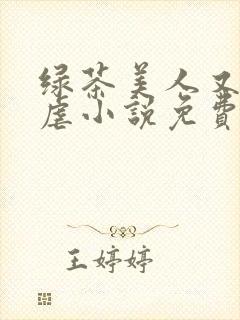 绿茶美人又
虐小説免費
王婷婷